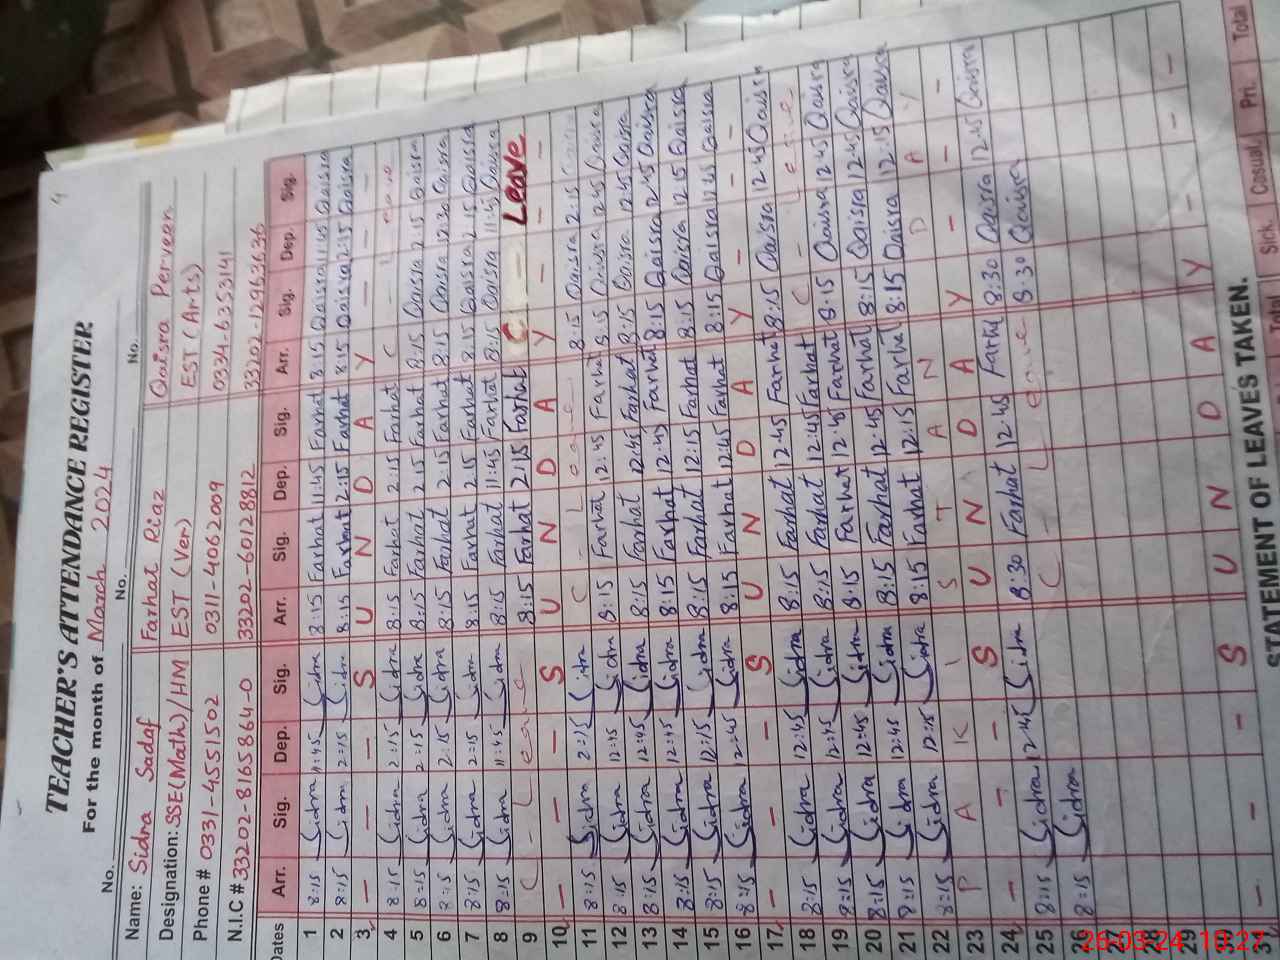 TEACHER'S ATTENDANCE REGISTER
For the month of March 2024
No. No. No.
Name: Sidra Sadaf Farhat Riaz Qaisra Perveen
Designation: SSE(Math)/HM EST (Ver) EST (Arts)
Phone # 0331-4551502 0311-4062009 0334-6353141
N.I.C # 33202-8165864-0 33202-60128812 33202-12963636
Dates Arr. Sig. Dep. Sig. Arr. Sig. Dep. Sig. Arr. Sig. Dep. Sig.
1 8:15 Sidra 11:45 Sidra 8:15 Farhat 11:45 Farhat 8:15 Qaisra 11:45 Qaisra
2 8:15 Sidra 2:15 Sidra 8:15 Farhat 2:15 Farhat 8:15 Qaisra 2:15 Qaisra
3 — — — S U N D A Y — — —
4 8:15 Sidra 2:15 Sidra 8:15 Farhat 2:15 Farhat C - Leave
5 8:15 Sidra 2:15 Sidra 8:15 Farhat 2:15 Farhat 8:15 Qaisra 2:15 Qaisra
6 8:15 Sidra 2:15 Sidra 8:15 Farhat 2:15 Farhat 8:15 Qaisra 12:30 Qaisra
7 8:15 Sidra 2:15 Sidra 8:15 Farhat 2:15 Farhat 8:15 Qaisra 2:15 Qaisra
8 8:15 Sidra 11:45 Sidra 8:15 Farhat 11:45 Farhat 8:15 Qaisra 11:45 Qaisra
9 C - Leave 8:15 Farhat 2:15 Farhat C — Leave
10 — — — S U N D A Y — — —
11 8:15 Sidra 2:15 Sidra C - Leave 8:15 Qaisra 2:15 Qaisra
12 8:15 Sidra 12:45 Sidra 8:15 Farhat 12:45 Farhat 8:15 Qaisra 12:45 Qaisra
13 8:15 Sidra 12:45 Sidra 8:15 Farhat 12:45 Farhat 8:15 Qaisra 12:45 Qaisra
14 8:15 Sidra 12:45 Sidra 8:15 Farhat 12:45 Farhat 8:15 Qaisra 12:45 Qaisra
15 8:15 Sidra 12:15 Sidra 8:15 Farhat 12:15 Farhat 8:15 Qaisra 12:15 Qaisra
16 8:15 Sidra 12:45 Sidra 8:15 Farhat 12:45 Farhat 8:15 Qaisra Qaisra
17 — — — S U N D A Y — — —
18 8:15 Sidra 12:45 Sidra 8:15 Farhat 12:45 Farhat 8:15 Qaisra 12:45 Qaisra
19 8:15 Sidra 12:45 Sidra 8:15 Farhat 12:45 Farhat C - Leave
20 8:15 Sidra 12:45 Sidra 8:15 Farhat 12:45 Farhat 8:15 Qaisra 12:45 Qaisra
21 8:15 Sidra 12:45 Sidra 8:15 Farhat 12:45 Farhat 8:15 Qaisra 12:45 Qaisra
22 8:15 Sidra 12:15 Sidra 8:15 Farhat 12:15 Farhat 8:15 Qaisra 12:15 Qaisra
23 P A K I S T A N D A Y
24 — — — S U N D A Y — — —
25 8:15 Sidra 12:45 Sidra 8:30 Farhat 12:45 Farhat 8:30 Qaisra 12:45 Qaisra
26 8:15 Sidra C - Leave 8:30 Qaisra
27
28
29
30
31 — — — S U N D A Y — — —
STATEMENT OF LEAVES TAKEN.
Total Sick. Casual. Pri. Total
26-03-24 10:27